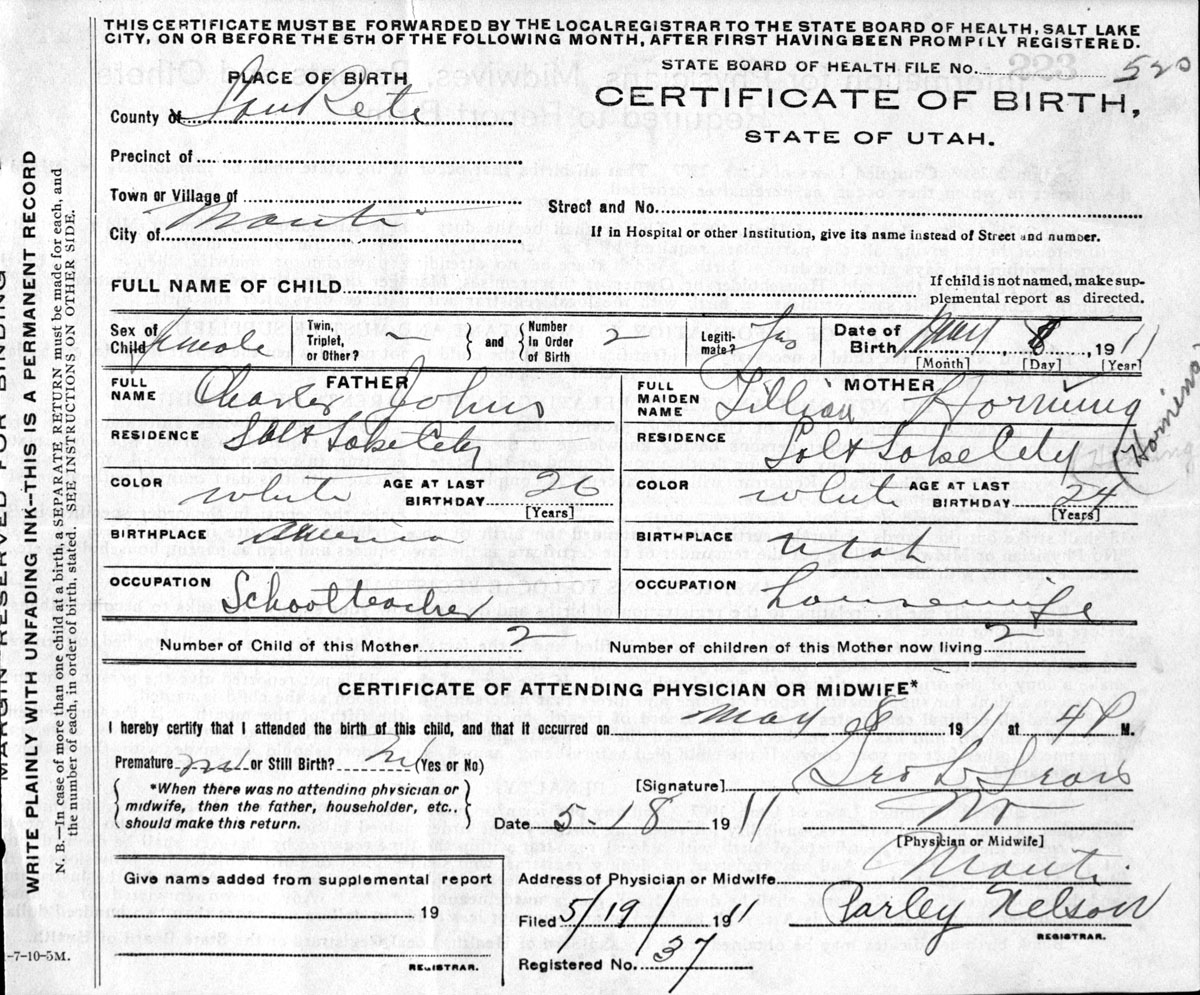 THIS CERTIFICATE MUST BE FORWARDED BY THE LOCAL REGISTRAR TO THE STATE BOARD OF HEALTH, SALT LAKE
CITY, ON OR BEFORE THE 5TH OF THE FOLLOWING MONTH, AFTER FIRST HAVING BEEN PROMPTLY REGISTERED.
STATE BOARD OF HEALTH FILE No. 520
PLACE OF BIRTH
CERTIFICATE OF BIRTH,
STATE OF UTAH.
County of SanPete
Precinct of
Town or Village of
Street and No.
City of Manti
If in Hospital or other Institution, give its name instead of Street and number.
FULL NAME OF CHILD
If child is not named, make sup-
plemental report as directed.
Sex of Child female
Twin, Triplet, or Other? –
and
Number in Order of Birth 2
Legiti-mate? Yes
Date of Birth May 8, 1911
[Month] [Day] [Year]
FATHER
FULL NAME Charles Johns
MOTHER
FULL MAIDEN NAME Lillian Horning
RESIDENCE Salt Lake City
RESIDENCE Salt Lake City
Horning
COLOR white AGE AT LAST BIRTHDAY 26 [Years]
COLOR whit AGE AT LAST BIRTHDAY 24 [Years]
BIRTHPLACE america
BIRTHPLACE utah
OCCUPATION Schoolteacher
OCCUPATION housewife
Number of Child of this Mother 2
Number of children of this Mother now living 2
CERTIFICATE OF ATTENDING PHYSICIAN OR MIDWIFE*
I hereby certify that I attended the birth of this child, and that it occurred on May 8 191 at 4 P M.
Premature no or Still Birth? (Yes or No)
*When there was no attending physician or
midwife, then the father, householder, etc.,
should make this return.
[Signature]
Date 5 18 1911
[Physician or Midwife]
Give name added from supplemental report
191
REGISTRAR.
Address of Physician or Midwife Manti
Filed 5/19/1911
Parley Nelson
REGISTRAR.
Registered No. 37
-7-10-5M.
MARGIN RESERVED FOR BINDING
WRITE PLAINLY WITH UNFADING INK--THIS IS A PERMANENT RECORD
N. B.—In case of more than one child at a birth, a SEPARATE RETURN must be made for each, and
the number of each, in order of birth, stated. SEE INSTRUCTION ON OTHER SIDE.